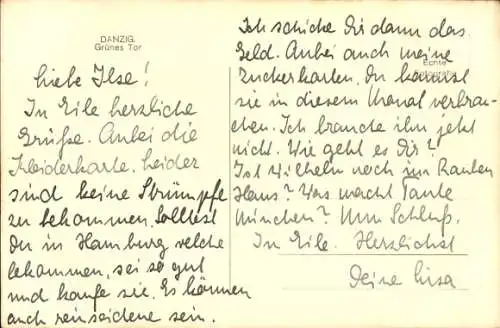 DANZIG.
Grünes Tor
Liebe Ilse!
In Eile herzliche
Grüße. Anbei die
Kleiderkarte. Leider
sind keine Strümpfe
zu bekommen. Solltest
Du in Hamburg welche
bekommen, sei so gut
und kaufe sie. Es können
auch reinseidene sein.
Ich schicke Dir dann das
Geld. Anbei auch meine
Echte
Zuckerkarten. Du kannst
sie in diesem Monat verbrau-
chen. Ich brauche ihn jetzt
nicht. Wie geht es Dir?
Ist Wilhelm noch im Rauhen
Haus? Was macht Tante
Minchen? Nun Schluß.
In Eile. Herzlichst
Deine Lisa